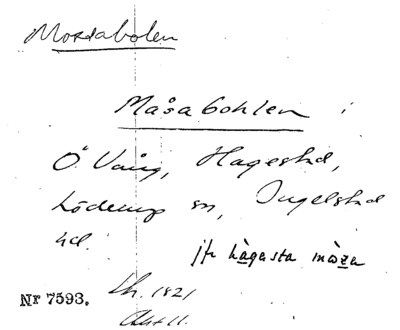 Mossabolen
Måsabohlen i
Ö. Vång, Hagestad,
Löderup sn, Ingelstad
hd.
jfr hàgasta mòza
Nr 7593.
Lh. 1821
Akt 11.